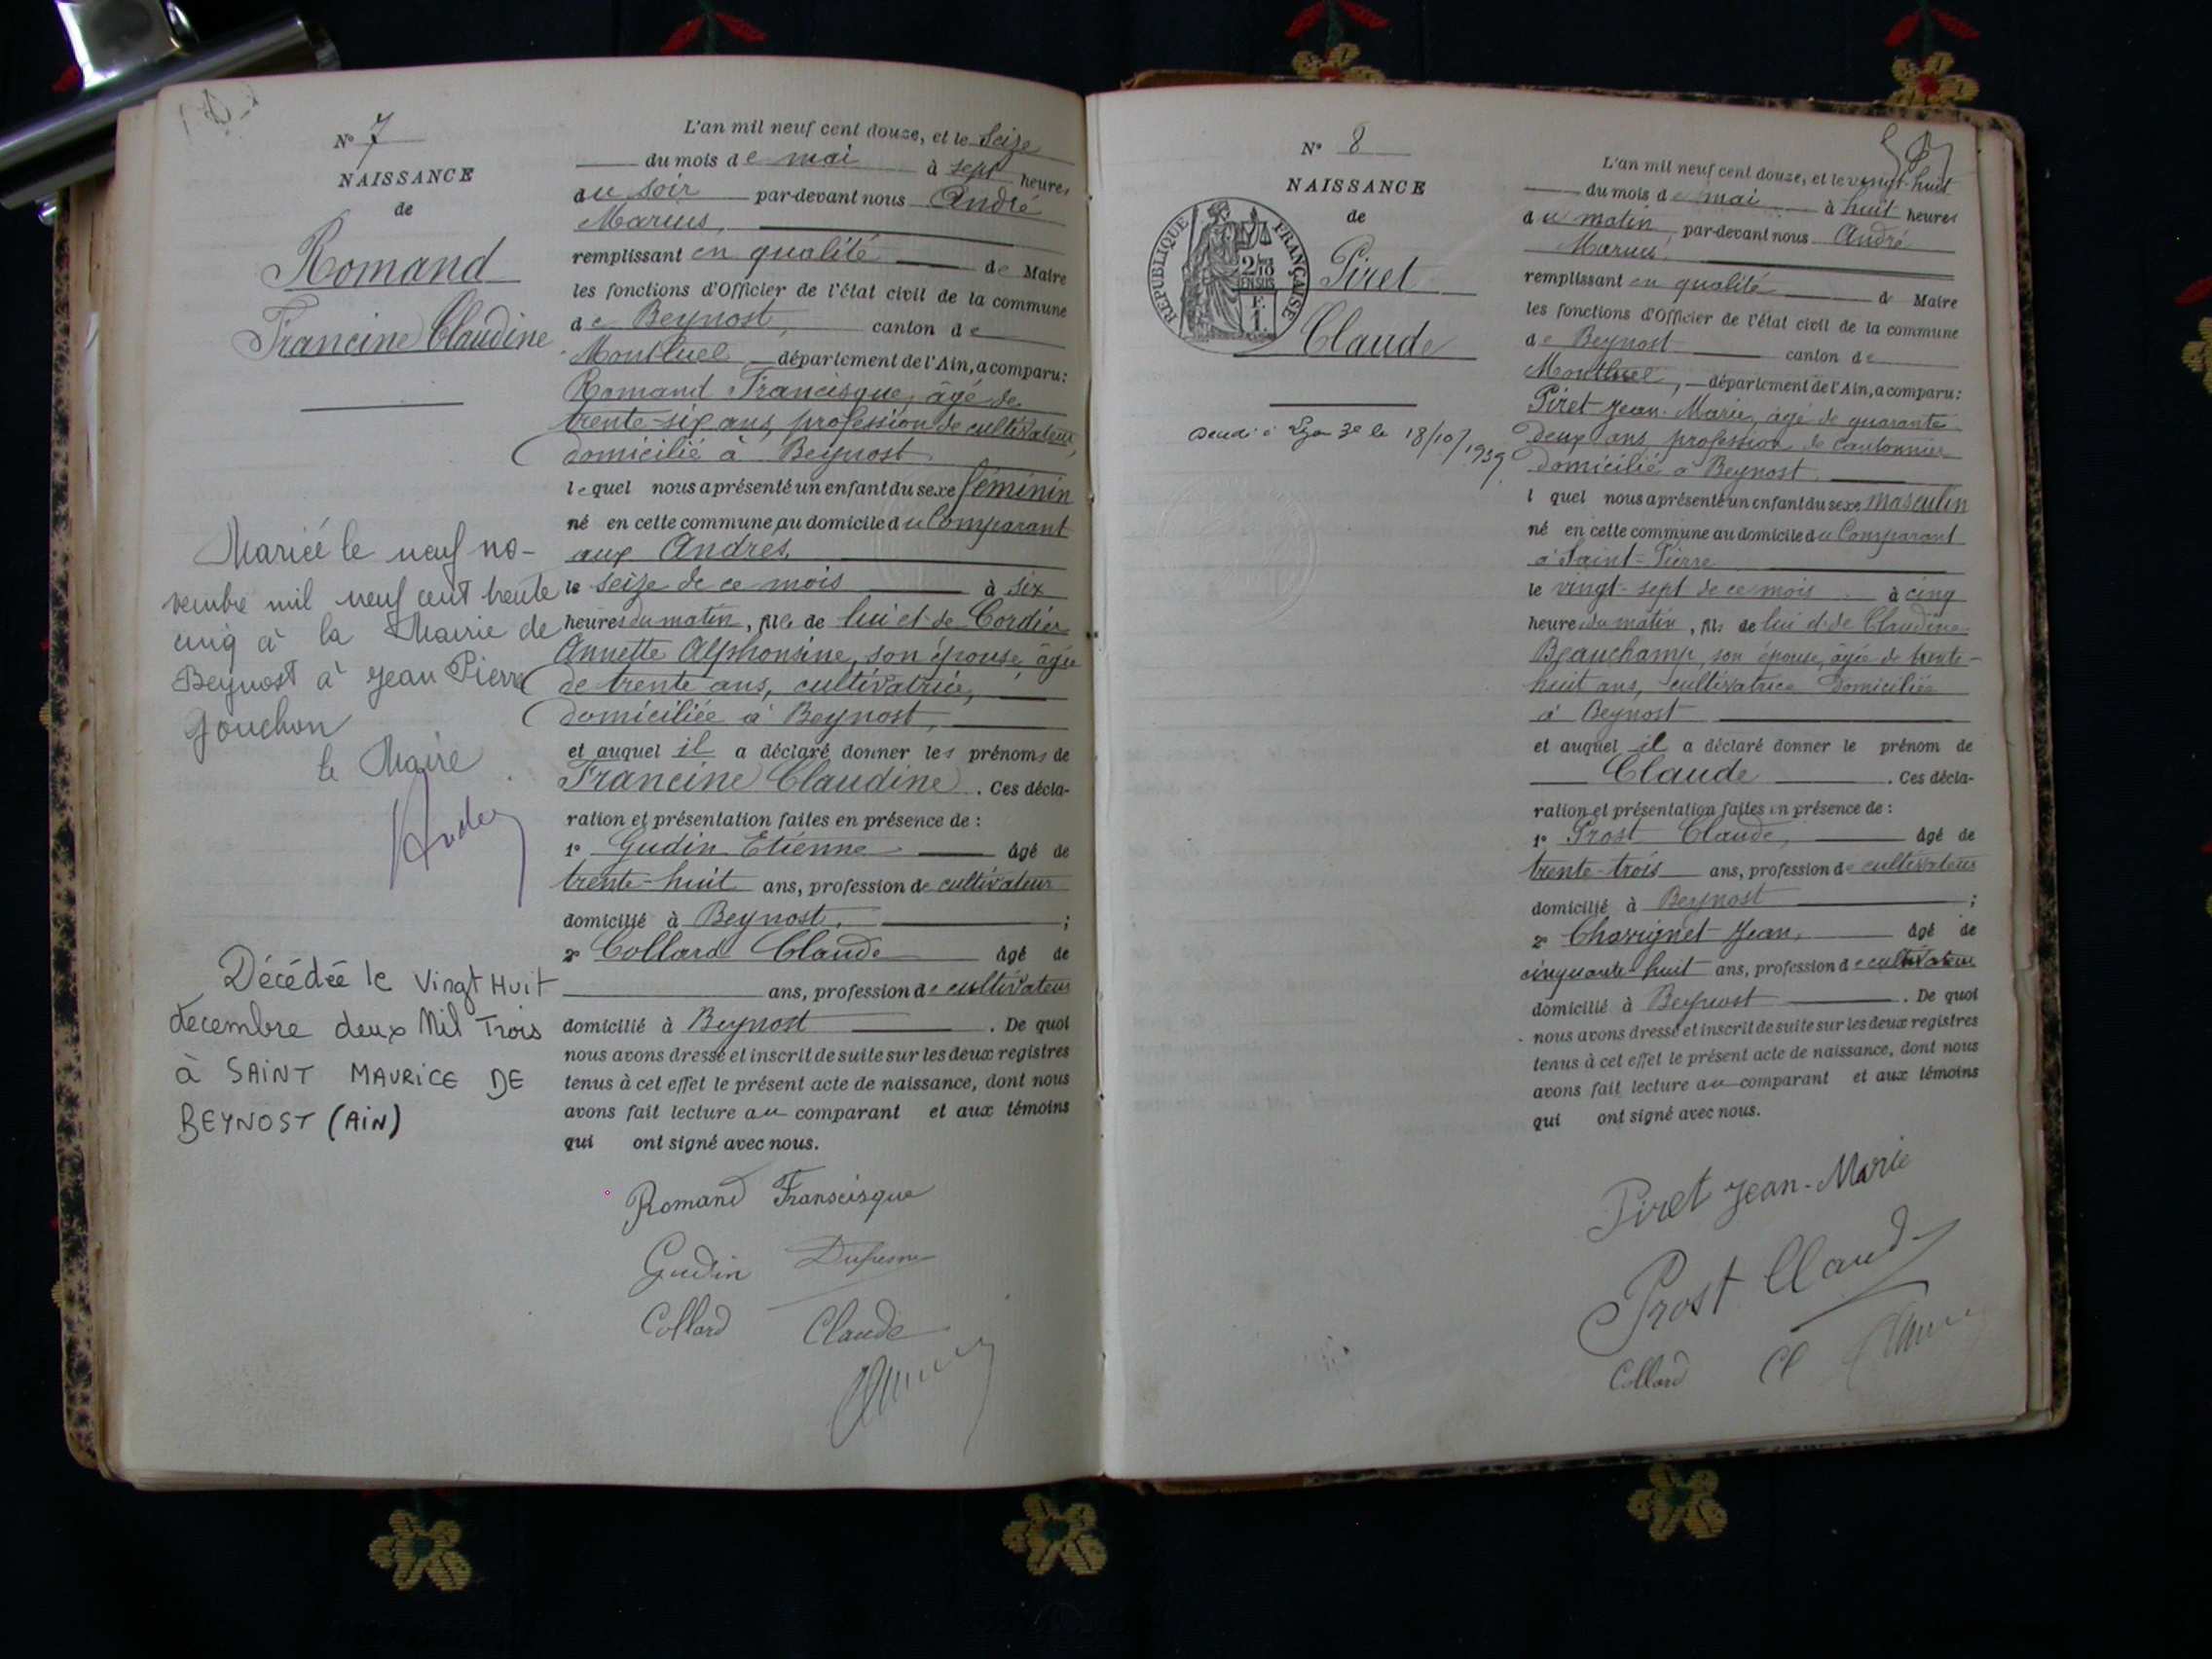 N° 7
NAISSANCE
de
Romand
Francine Claudine
Mariée le neuf no-
vembre mil neuf cent trente
cinq à la Mairie de
Beynost à Jean Pierre
Gouchon
le Maire
Décédée le Vingt Huit
décembre deux Mil Trois
à SAINT MAURICE DE
BEYNOST (AIN)
L'an mil neuf cent douze, et le seize
du mois de mai à sept heures
du soir par-devant nous André
Marius,
remplissant en qualité de Maire
les fonctions d'Officier de l'état civil de la commune
de Beynost, canton de
Montluel département de l'Ain, a comparu:
Romand Francisque, âgé de
trente-six ans, profession de cultivateur,
domicilié à Beynost
lequel nous a présenté un enfant du sexe féminin
né en cette commune au domicile du Comparant
aux Andrés,
le seize de ce mois à six
heures du matin, fille de lui et de Cordier
Annette Alphonsine, son épouse, âgée
de trente ans, cultivatrice,
domiciliée à Beynost,
et auquel il a déclaré donner les prénoms de
Francine Claudine. Ces décla-
ration et présentation faites en présence de :
1° Gudin Etienne âgé de
trente-huit ans, profession de cultivateur
domicilié à Beynost, ;
2° Collard Claude âgé de
ans, profession de cultivateur
domicilié à Beynost . De quoi
nous avons dressé et inscrit de suite sur les deux registres
tenus à cet effet le présent acte de naissance, dont nous
avons fait lecture au comparant et aux témoins
qui ont signé avec nous.
Romand Franscisque
Gudin
Collard Claude
N° 8
NAISSANCE
de
Piret
Claude
REPUBLIQUE FRANÇAISE
2/10 EN SUS
F.
1.
Lyon 3e le 18/10/1939
L'an mil neuf cent douze, et le vingt-huit
du mois de mai à huit heures
du matin par-devant nous André
Marius,
remplissant en qualité d Maire
les fonctions d'Officier de l'état civil de la commune
de Beynost canton de
Montluel, département de l'Ain, a comparu:
Piret Jean-Marie, âgé de quarante
deux ans, profession de cantonnier
domicilié à Beynost
l quel nous a présenté un enfant du sexe masculin
né en cette commune au domicile du Comparant
à Saint-Pierre
le vingt-sept de ce mois à cinq
heures du matin, fils de lui et de Claudine
Beauchamp, son épouse, âgée de trente-
huit ans, cultivatrice domiciliée
à Beynost
et auquel il a déclaré donner le prénom de
Claude . Ces décla-
ration et présentation faites en présence de :
1° Prost Claude, âgé de
trente-trois ans, profession de cultivateur
domicilié à Beynost ;
2° Chavignet Jean, âgé de
cinquante-huit ans, profession de cultivateur
domicilié à Beynost . De quoi
nous avons dressé et inscrit de suite sur les deux registres
tenus à cet effet le présent acte de naissance, dont nous
avons fait lecture au comparant et aux témoins
qui ont signé avec nous.
Piret Jean-Marie
Prost Claude
Collard Cl